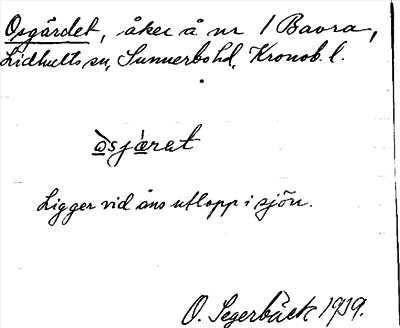 Osgärdet, åker å nr 1 Bavra,
Lidhults sn, Sunnerbo hd, Kronob. l.
ɷsjæ̀rat
Ligger vid åns utlopp i sjön.
O. Segerbäck 1919.